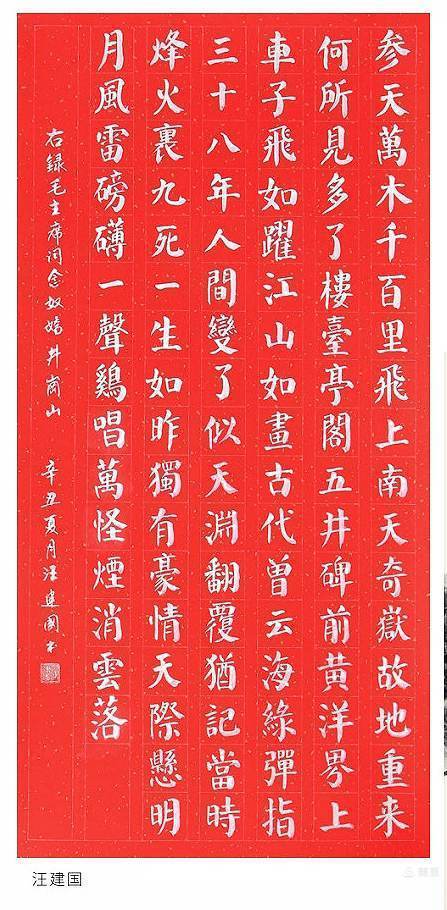 参天萬木千百里飛上南天奇嶽故地重来
何所見多了樓臺亭閣五井碑前黄洋界上
車子飛如躍江山如畫古代曾云海綠彈指
三十八年人間變了似天淵翻覆猶記當時
烽火裏九死一生如昨獨有豪情天際懸明
月風雷磅礴一聲鷄唱萬怪煙消雲落
右録毛主席词念奴嬌井岗山 辛丑夏月汪建國书
汪建国